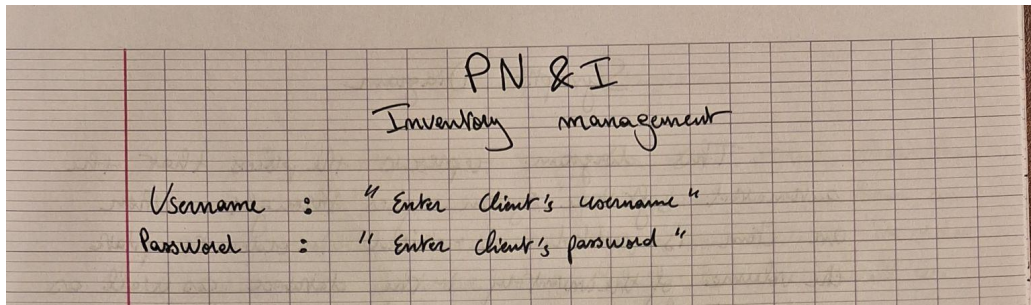 PN & I
Inventory management
Username : " Enter Client's username "
Password : " Enter client's password "